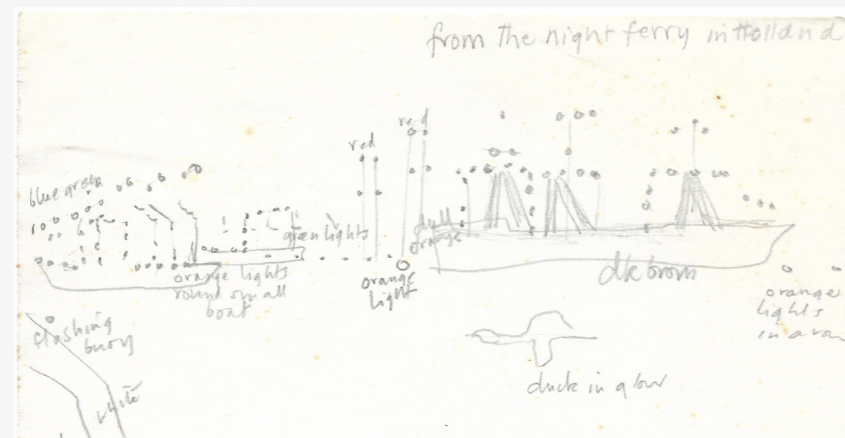 from the night ferry in Holland
red
red
blue green
green lights
dull
orange
orange lights
round small
boat
orange
light
dk brown
orange
lights
in a row
flashing
buoy
duck in glow
white